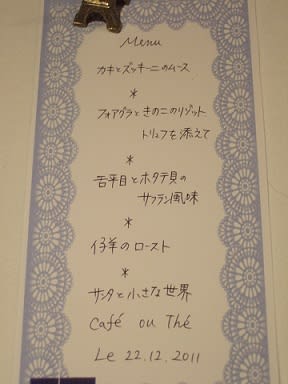 Menu
カキとズッキーニのムース
*
フォアグラときのこのリゾット
トリュフを添えて
*
舌平目とホタテ貝の
サフラン風味
*
仔羊のロースト
*
サンタと小さな世界
Café ou Thé
Le 22.12.2011